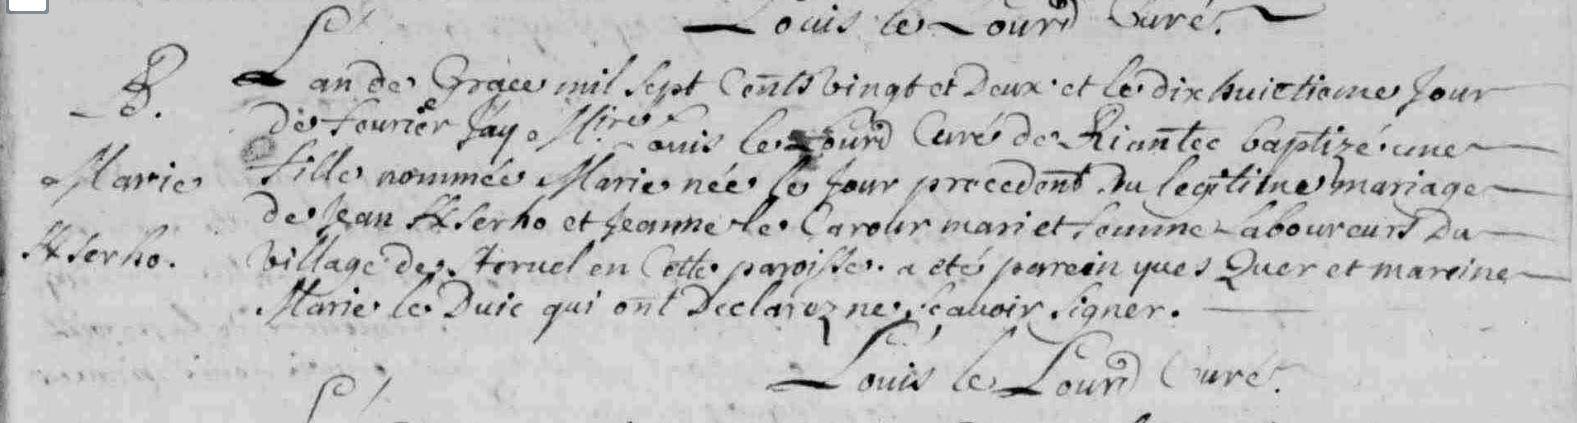 Louis le Lourd Curé.
B.
Marie
Kserho.
L'an de Grace mil sept Cents vingt et Deux et le dix huictieme Jour
de feurier Jay Mire Louis le Lourd Curé de Riantec baptizé une
fille nommée Marie née le Jour precedent Du legitime mariage
de Jean Kserho et Jeanne le Carour mari et femme Laboureurs Du
village de en Cette paroisse. a eté parrein yues Quer et mareine
Marie le Duic qui ont Declarez ne scauoir signer.
Louis le Lourd Curé.
L'